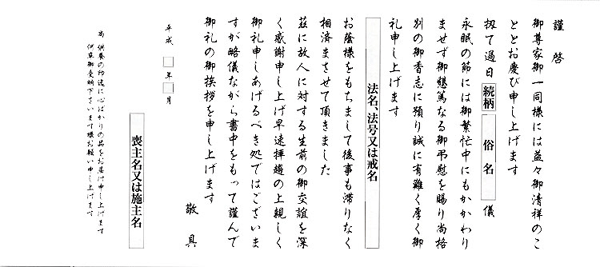 謹啓
御尊家御一同様には益々御清祥のこ
ととお慶び申し上げます
扨て過日 続柄 俗名 儀
永眠の節には御繁忙中にもかかわり
ませず御懇篤なる御弔慰を賜り尚格
別の御香志に預り誠に有難く厚く御
礼申し上げます
法名、法号又は戒名
お蔭様をもちまして後事も滞りなく
相済まさせて頂きました
茲に故人に対する生前の御交誼を深
く感謝申し上げ早速拝趨の上親しく
御礼申しあげるべき処ではございま
すが略儀ながら書中をもって謹んで
御礼の御挨拶を申し上げます
敬具
平成□年□月
喪主名又は施主名
尚 供養の印迄に心ばかりの品をお届け申し上げます
何卒御受納下さいます様お願い申し上げます